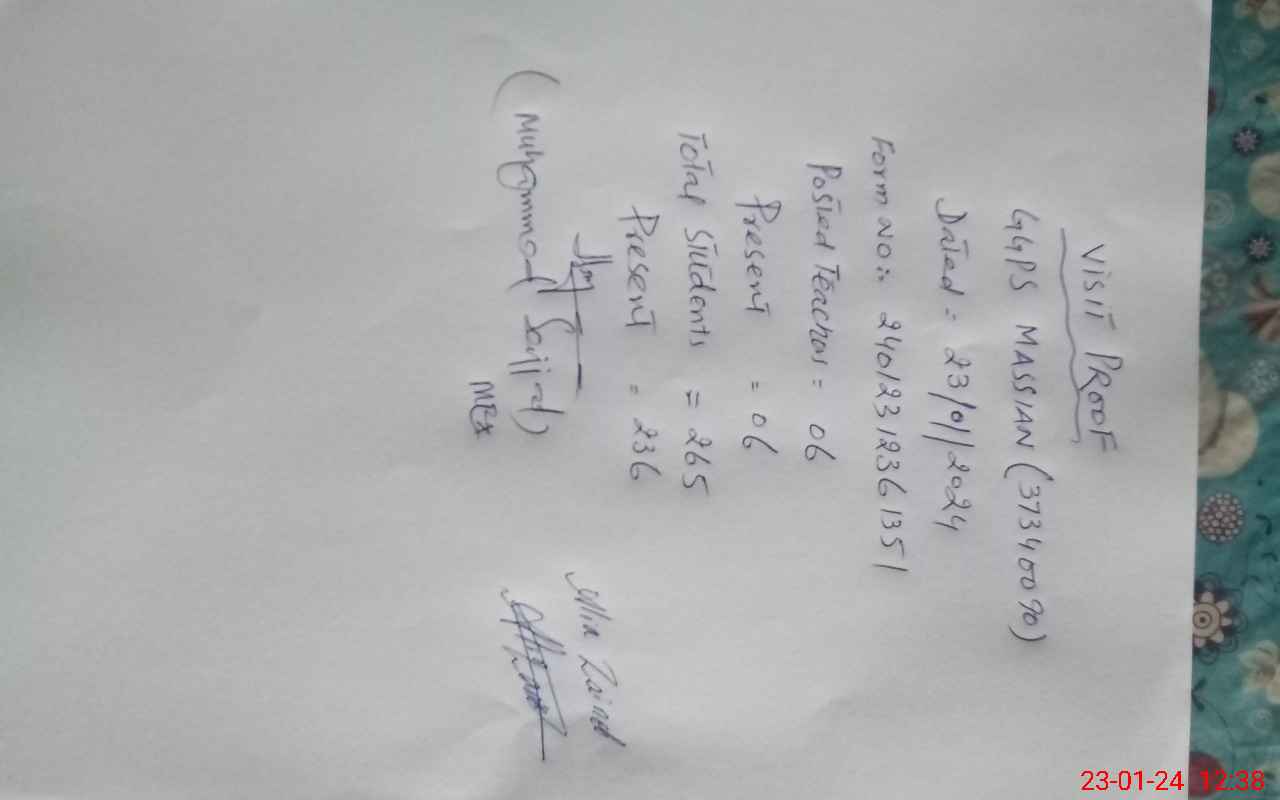 VISIT PROOF
GGPS MASSIAN (37340090)
Dated = 23/01/2024
Form No:: 24012312361351
Posted Teachers = 06
Present = 06
Total Students = 265
Present = 236
(Muhammad Sajjad)
MEA
Zainab
23-01-24 12:38